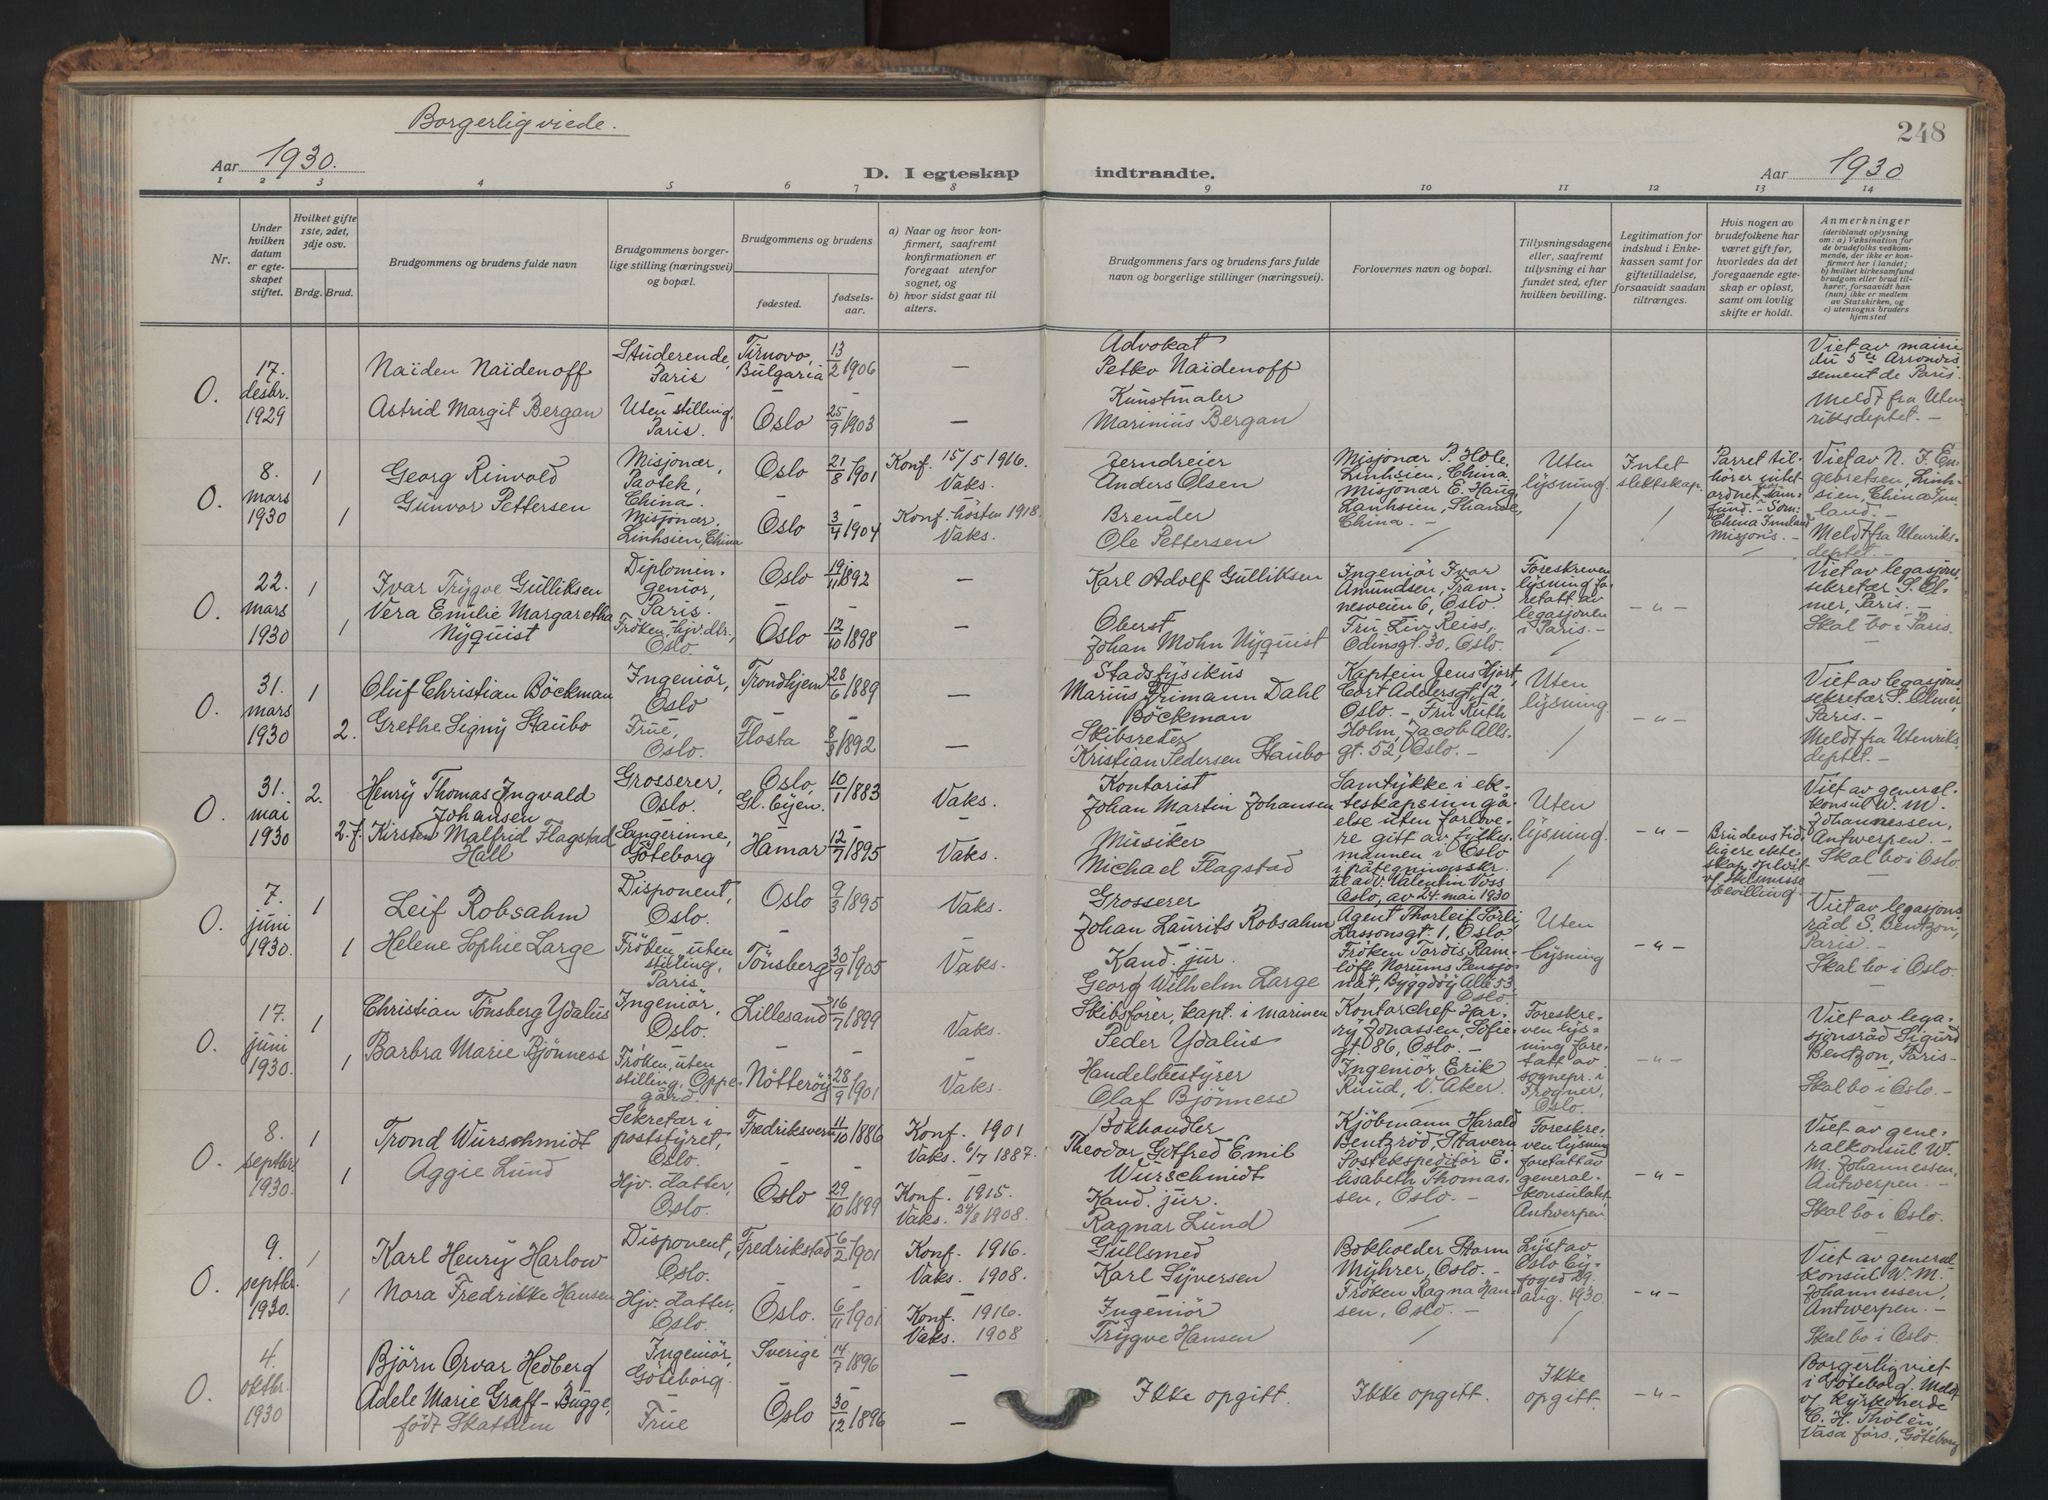 Borgerlig viede.
248
Aar 1930.
D. I egteskap
indtraadte.
Aar 1930
1 2 3 4 5 6 7 8 9 10 11 12 13 14
Nr.
Under
hvilken
datum
er egte-
skapet
stiftet.
Hvilket gifte
1ste, 2det,
3dje osv.
Brdg. Brud.
Brudgommens og brudens fulde navn
Brudgommens borger-
lige stilling (næringsvei)
og bopæl.
Brudgommens og brudens
fødested.
fødsels-
aar.
a) Naar og hvor kon-
firmert, saafremt
konfirmationen er
foregaat utenfor
sognet, og
b) hvor sidst gaat til
alters.
Brudgommens fars og brudens fars fulde
navn og borgerlige stillinger (næringsvei).
Forlovernes navn og bopæl.
Tillysningsdagene
eller, saafremt
tillysning ei har
fundet sted, efter
hvilken bevilling.
Legitimation for
indskud i Enke-
kassen samt for
giftetilladelse,
forsaavidt saadan
tiltrænges.
Hvis nogen av
brudefolkene har
været gift før,
hvorledes da det
foregaaende egte-
skap er opløst,
samt om lovlig
skifte er holdt.
Anmerkninger
(deriblandt oplysning
om: a) Vaksination for
de brudefolks vedkom-
mende, der ikke er kon-
firmert her i landet;
b) hvilket kirkesamfund
brudgom eller brud til-
hører, forsaavidt han
(hun) ikke er medlem
av Statskirken, og
c) utensogns bruders
hjemsted
O.
17.
desbr.
1929
Naïden Naïdenoff
Astrid Margit Bergan
Studerende,
Paris
Uten stilling,
Paris.
Tirnovo,
Bulgaria
Oslo
13/2 1906
25/9 1903
Advokat
Petko Naïdenoff
Kunstmaler
Marinius Bergan
Viet av mairie
du 5te Arrondis
sement de Paris.
Meldt fra Uten
riksdeptet. -
O.
8.
mars
1930
1
1
Georg Rinvold
Gunvor Pettersen
Misjonær,
Paotek,
China.
Misjonær,
Linhsien, China
Oslo
Oslo
21/8 1901
3/4 1904
Konf. 15/5 1916.
Vaks.
Konf. høsten 1918.
Vaks.
Jerndreier
Anders Olsen
Brender
Ole Pettersen
Misjonær P. Hole,
Linhsien, China.
Misjonær E. Haug,
Lanhsien, Shansi,
China. -
Uten
lysning.
Intet
slektskap.
Parret til-
hører intet
ordnet sam-
fund. - Som:
China Innland
misjons. -
Viet av N. J. En
gebretsen, Linh-
sien, China Inn-
land. -
Meldt fra Utenriks-
deptet. -
O.
22.
mars
1930
1
1
Ivar Trygve Gulliksen
Vera Emilie Margaretha
Nyquist
Diplomin-
geniör,
Paris.
Fröken, hjv. dtr.,
Oslo
Oslo
Oslo
19/11 1892
12/10 1898
Karl Adolf Gulliksen
Oberst
Johan Mohn Nyquist
Ingeniör Ivar
Amundsen, Tram-
nesveien 6, Oslo.
Fru Liv Reiss,
Odinsgt. 30, Oslo.
Foreskreven
lysning fo-
retatt av
legasjonen
i Paris. -
- " -
Viet av legasjons
sekretær S. Ol-
mer, Paris. -
Skal bo i Paris.
O.
31.
mars
1930
1
2.
Oluf Christian Böckman
Grethe Signy Staubo
Ingeniör,
Oslo
Frue,
Oslo.
Trondhjem
Flosta
28/6 1889
8/8 1892
Stadsfysikus
Marius Trimann Dahl
Böckman
Skibsreder
Kristian Pedersen Staubo
Kaptein Jens Hjort,
Cort Adelersgt. 12
Oslo. - Fru Ruth
Holm, Jacob Alls-
gt. 52, Oslo. -
Uten
lysning
- " -
Viet av legasjons
sekretær S. Olmer,
Paris. -
Meldt fra Utenriks-
deptet. -
O.
31.
mai
1930
2.
2. f.
Henry Thomas Ingvald
Johansen
Kirsten Malfrid Flagstad
Hall
Grosserer,
Oslo.
Sangerinne,
Göteborg
Oslo,
Gl. byen.
Hamar
10/1 1883
12/7 1895
Vaks.
Vaks.
Kontorist
Johan Martin Johansen
Musiker
Michael Flagstad
Samtykke i ek-
teskapsinngå-
else uten forlove-
re gitt av fylkes-
mannen i Oslo
i påtegningsskr.
til adv. Valentin Voss
Oslo, av 24. mai 1930
Uten
lysning.
- " -
Brudens tid-
ligere ekte-
skap oplöst
v/ skilsmisse
bevilling
Viet av general-
konsul W. M.
Johannessen,
Antwerpen. -
Skal bo i Oslo
O.
7.
juni
1930.
1
1
Leif Robsahm
Helene Sophie Large
Disponent,
Oslo.
Fröken, uten
stilling,
Paris
Oslo
Tönsberg
9/3 1895
30/9 1905
Vaks.
Vaks.
Grosserer
Johan Laurits Robsahm
Kand. jur.
Georg Wilhelm Large
Agent Thorleif Sörli,
Lassonsgt. 1, Oslo
Fröken Tordis Ram-
löff, Norums Pensjo-
nat, Bygdöy Allé 53,
Oslo.
Uten
lysning
- " -
Viet av legasjons
råd S. Bentzon,
Paris -
Skal bo i Oslo.
O.
17.
juni
1930.
1
1
Christian Tönsberg Ydalus
Barbra Marie Bjönness
Ingeniör,
Oslo.
Fröken, uten
stilling, Oppe-
gård.
Lillesand
Nötteröy
16/7 1899
28/9 1901
Vaks.
Vaks.
Skibsförer, kapt. i marinen
Peder Ydalus
Handelsbestyrer
Olaf Bjönness
Kontorchef Har-
ry Jonassen, Sofie-
gt. 86, Oslo. -
Ingeniör Erik
Ruud, V. Aker.
Foreskre-
ven lys-
ning fore-
tatt av
sognepr. i
Frogner,
Oslo.
- " -
Viet av lega-
sjonsråd Sigurd
Bentzon, Paris -
Skal bo i Oslo. -
O.
8.
septbr.
1930.
1
1
Trond Wurschmidt
Aggie Lund
Sekretær i
poststyret,
Oslo.
Hjv. datter,
Oslo.
Fredriksvern
Oslo
11/10 1886
29/10 1899
Konf. 1901
Vaks. 6/7 1887.
Konf. 1915.
Vaks. 24/8 1908.
Bokhandler
Theodor Gotfred Emil
Wurschmidt
Kand. jur.
Ragnar Lund
Kjöbmann Harald
Bentzröd, Stavern
Postekspeditör E-
lisabeth Thomas-
sen, Oslo. -
Foreskre-
ven lysning
foretatt av
general-
konsulatet,
Antwerpen
- " -
Viet av gene-
ralkonsul W.
M. Johannessen,
Antwerpen. -
Skal bo i Oslo.
O.
9.
septbr.
1930.
1
1
Karl Henry Harlow
Nora Fredrikke Hansen
Disponent,
Oslo.
Hjv. datter,
Oslo.
Fredrikstad
Oslo.
6/2 1901
6/11 1901
Konf. 1916.
Vaks. 1908.
Konf. 1916.
Vaks. 1908
Gullsmed
Karl Syversen
Ingeniör
Trygve Hansen
Bokholder Storm
Myhrer, Oslo. -
Fröken Ragna Han-
sen, Oslo. -
Lyst av
Oslo by-
foged 29.
aug. 1930.
- " -
Viet av general-
konsul W. M.
Johannessen,
Antwerpen. -
Skal bo i Oslo.
O.
4.
oktbr.
1930
Björn Orvar Hedberg
Adele Marie Graff-Bugge,
född Skattum
Ingeniör,
Göteborg.
Frue
Sverige
Oslo
14/7 1896
30/12 1896
Ikke opgitt.
Ikke opgitt.
Ikke
opgitt.
- " -
Borgerlig viet
i Göteborg. Meldt
v/ kyrkoherde
C. H. Tholén,
Vasa förs., Göteborg